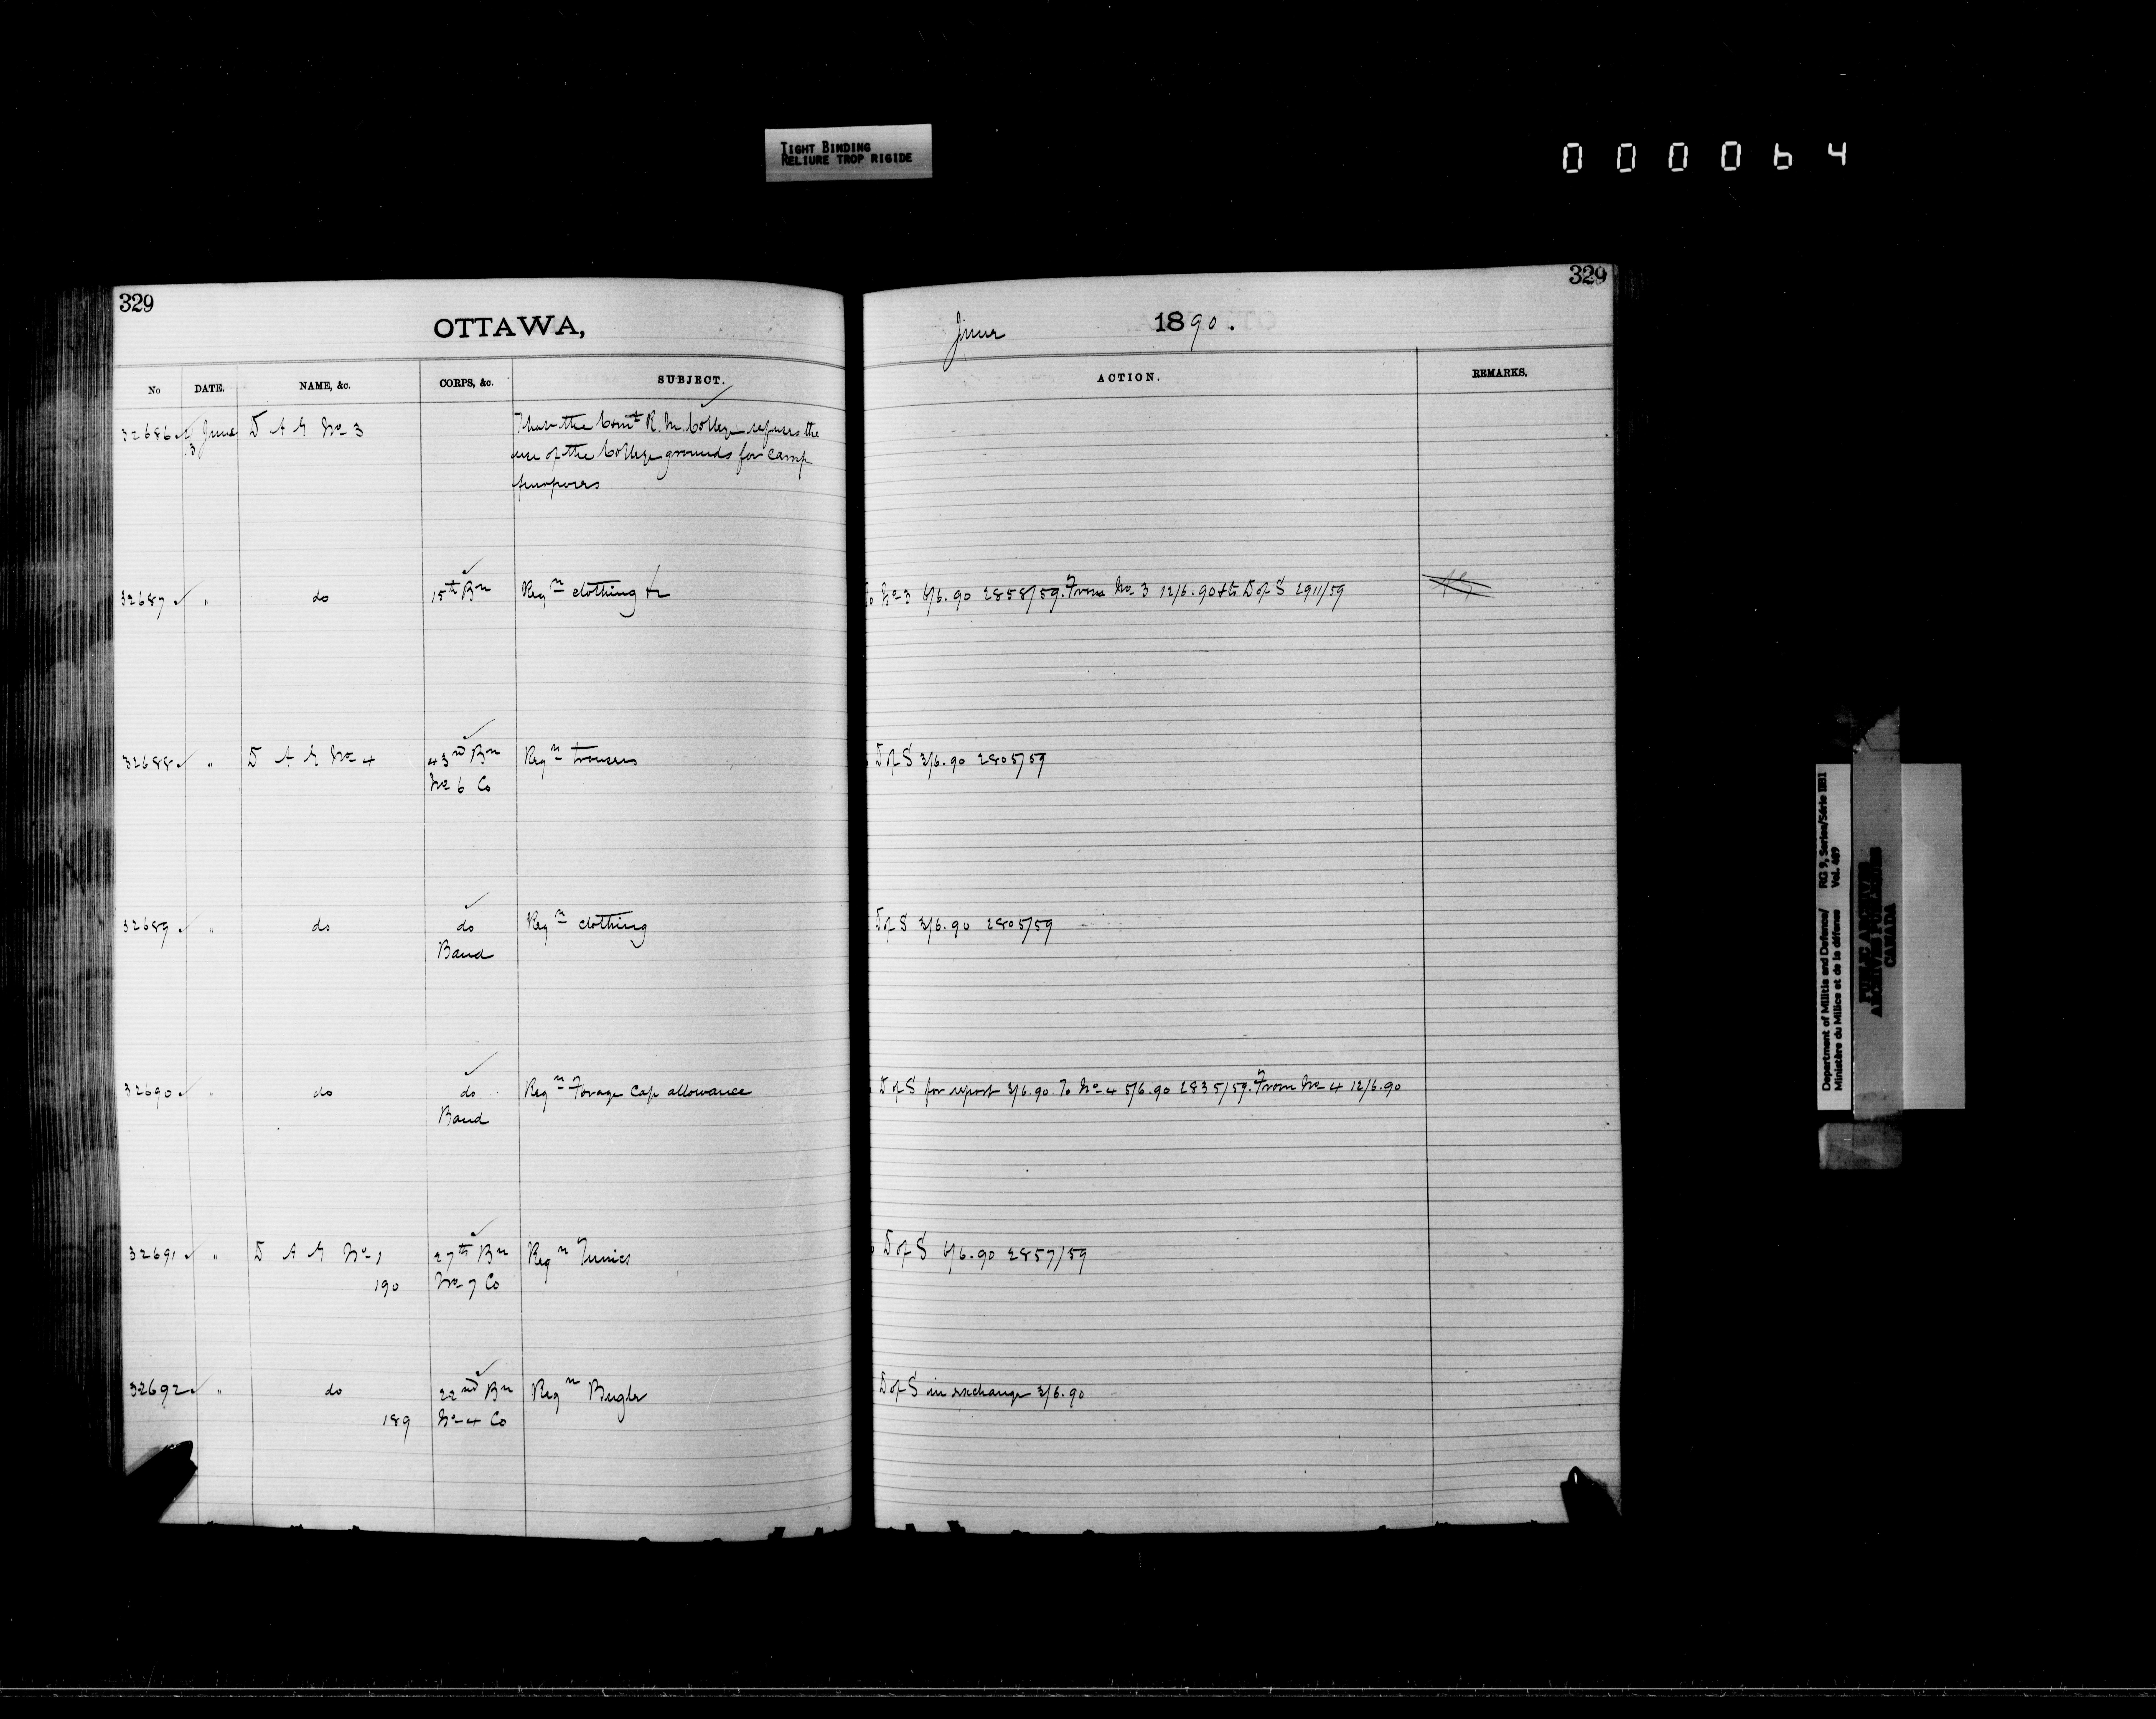 TIGHT BINDING
RELIURE TROP RIGIDE
000064
329
OTTAWA,
No DATE. NAME, &c. CORPS, &c. SUBJECT.
32686 3 June D A G No 3 That the Comt R. M. College refuses the
use of the College grounds for camp
purposes
32687 " do 15th Bn Reqn clothing &c
32688 " D A G No 4 43rd Bn Reqn trousers
No 6 Co
32689 " do do Reqn clothing
Band
32690 " do do Reqn Forage Cap allowance
Band
32691 " D A G No 1 27th Bn Reqn Tunics
190 No 7 Co
32692 " do 22nd Bn Reqn Bugle
189 No 4 Co
329
June 1890.
ACTION. REMARKS.
To No 3 6/6.90 2858/59. From No 3 12/6.90 & to D of S 2911/59
D of S 3/6.90 2805/59
D of S 3/6.90 2805/59
D of S for report 3/6.90. To No 4 5/6.90 2835/59. From No 4 12/6.90
D of S 6/6.90 2857/59
D of S in exchange 3/6.90
Department of Militia and Defence/ RG 9, Series/Série IIB1
Ministère du Milice et de la défense Vol. 489
PUBLIC ARCHIVES
ARCHIVES PUBLIQUES
CANADA